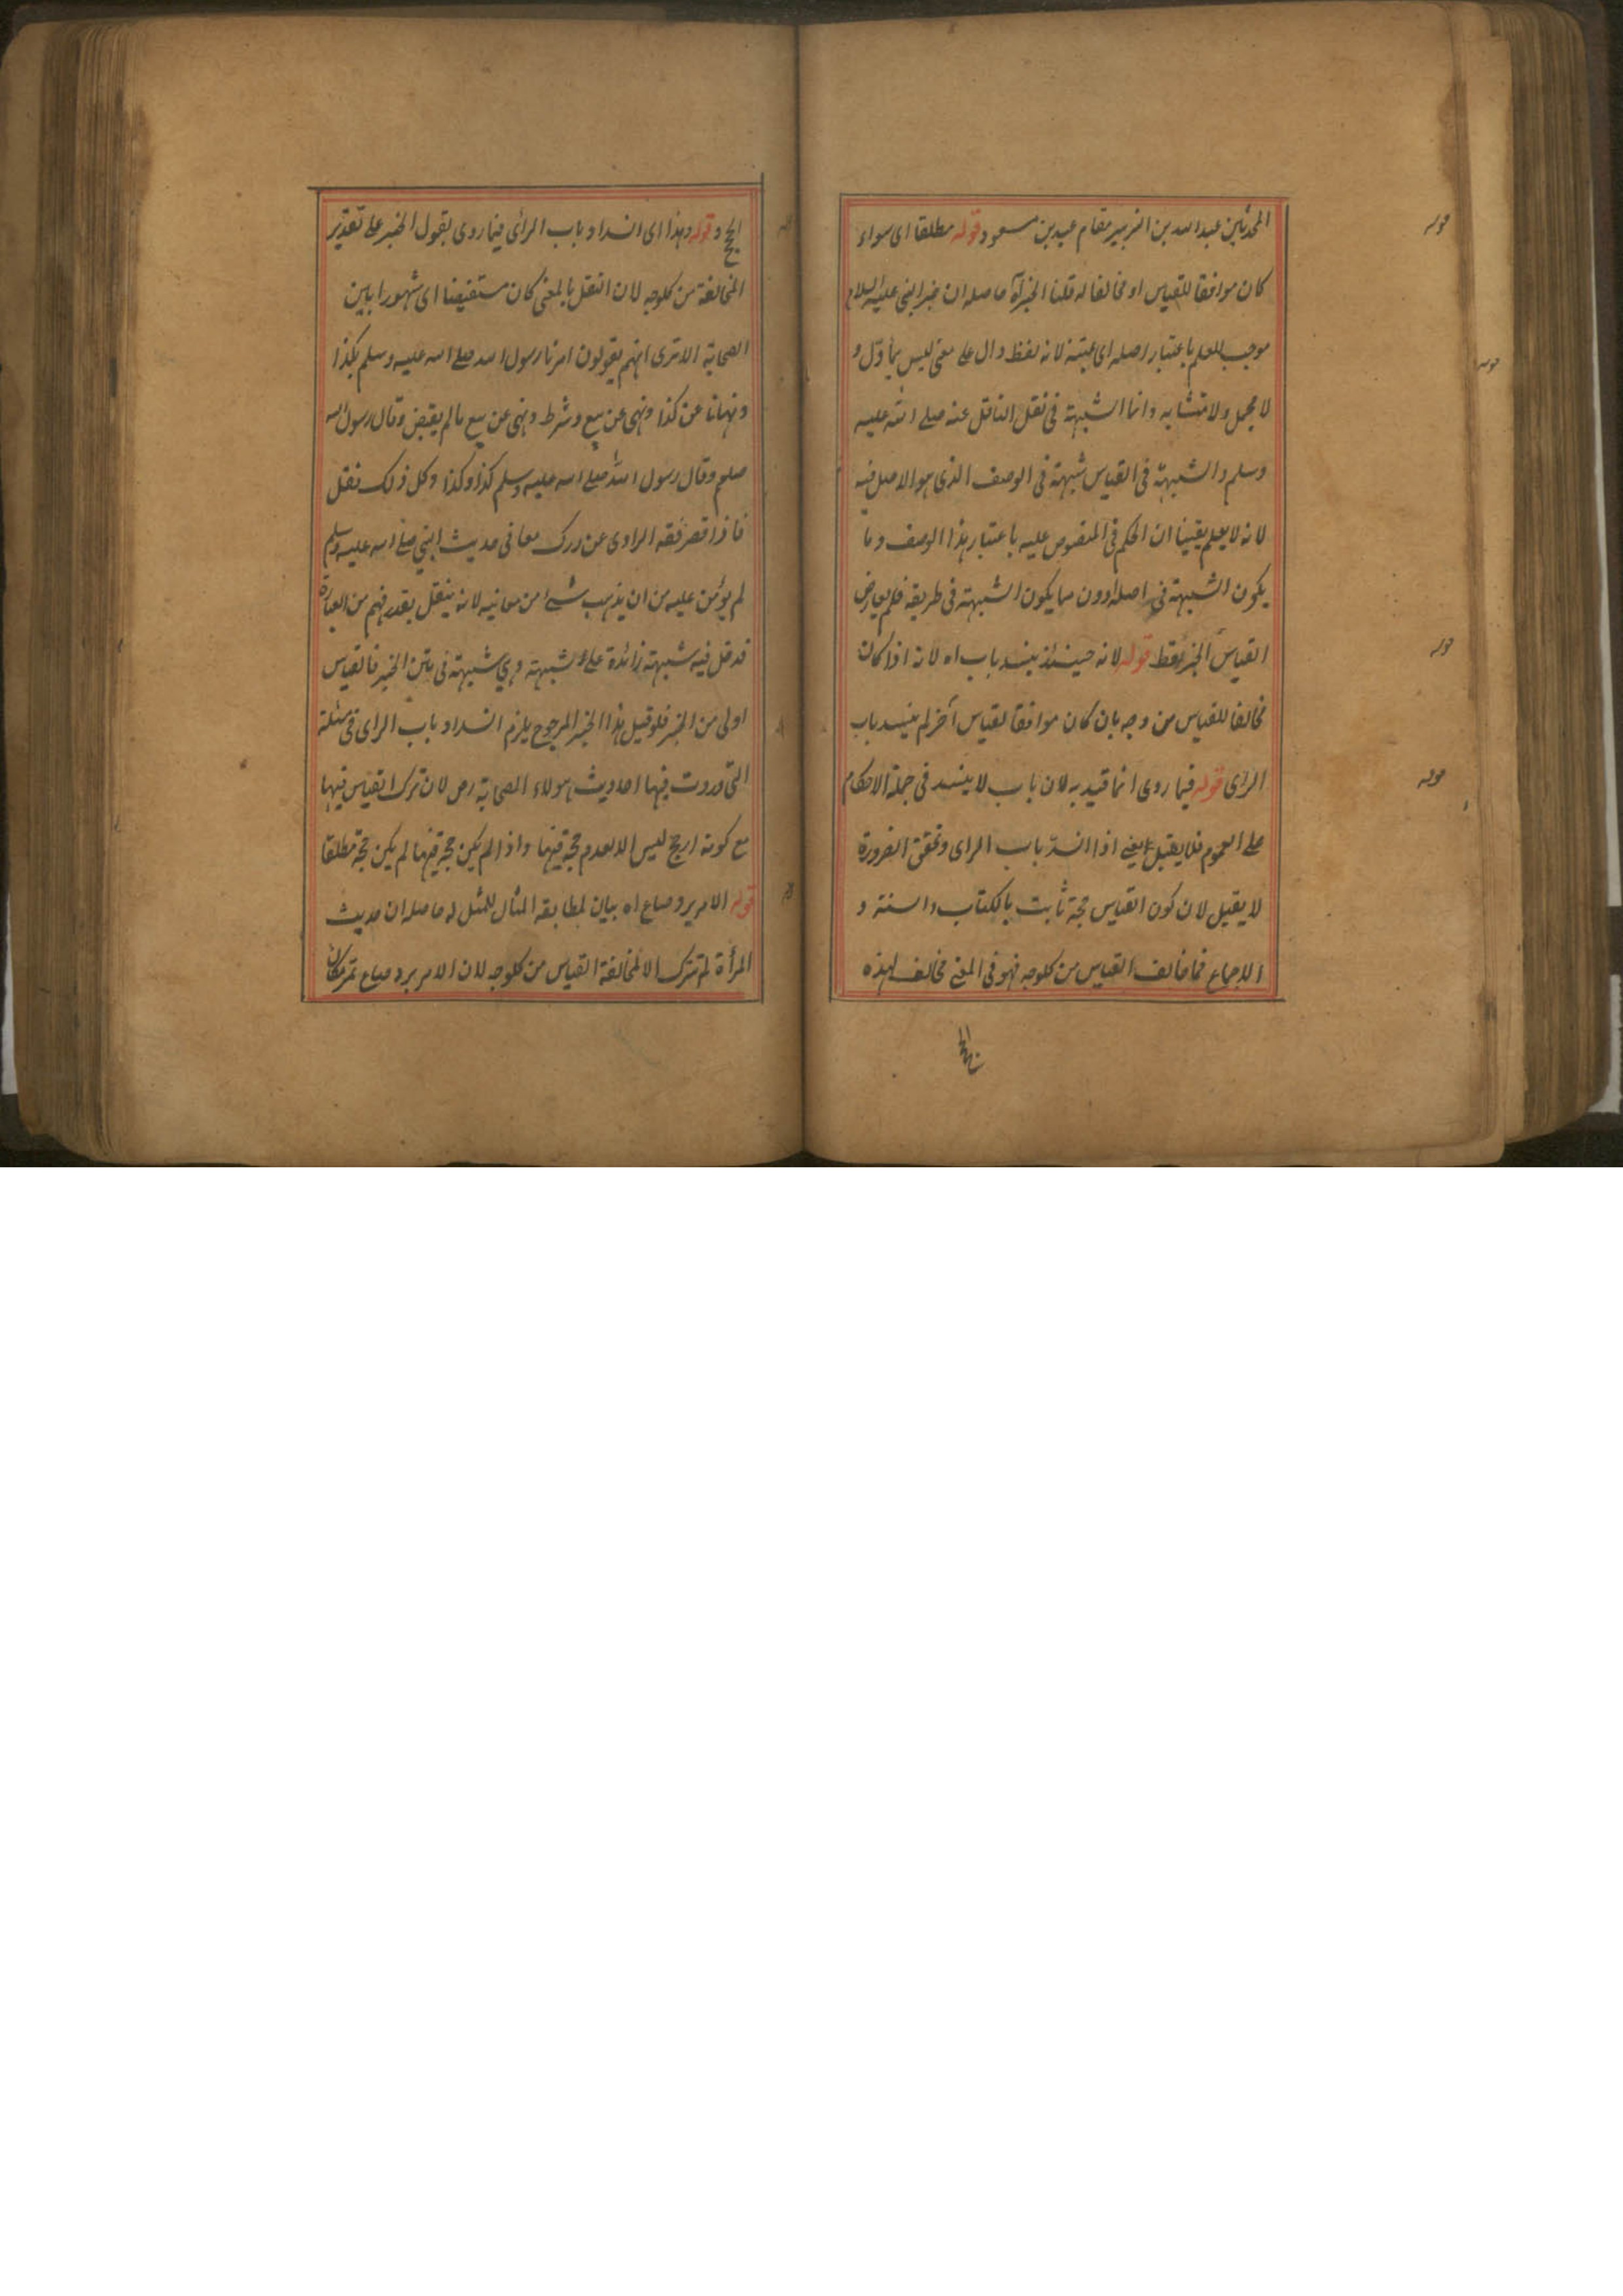 المحدثين عبد الله بن الزبير مقام عبد بن مسعود قوله مطلقا اى سواء
كان موافقا للقياس او مخالفا له قلنا الخبر آه حاصله ان خبر النبى عليه السلام
موجب للعلم باعتبار اصله اى عينه لانه لفظ دال على معنى ليس بمأوّل و
لا مجمل ولا متشابه وانما الشبهة فى نقل الناقل عنه صلى الله عليه
وسلم والشبهة فى القياس شبهة فى الوصف الذى هو الاصل فيه
لانه لا يعلم يقينا ان الحكم فى المنصوص عليه باعتبار هذا الوصف وما
يكون الشبهة فى اصله دون ما يكون الشبهة فى طريقه فلم يعارض
القياس الخبر قط قوله لانه حينئذ ينسد باب اه لانه اذا كان
مخالفا للقياس من وجه بان كان موافقا لقياس آخر لم ينسد باب
الراى قوله فيما روى انما قيد به لان باب لا ينسد فى جملة الاحكام
على العموم فلا يقبل يعنى اذا انسدّ باب الراى وتحقق الضرورة
لا يقبل لان كون القياس حجة ثابت بالكتاب والسنة و
الاجماع فما خالف القياس من كلوجه فهو فى المعنى مخالف لهذه
الحج و قوله وهذا اى انسداد باب الرأى فيما روى بقول الخبر على تقدير
المخالفة من كلوجه لان النقل بالمعنى كان مستفيضا اى شهورا بين
الصحابة الا ترى انهم يقولون امرنا رسول الله صلى الله عليه وسلم بكذا
ونهانا عن كذا ونهى عن بيع وشرط ونهى عن بيع مالم يقبض وقال رسول الله
صلم وقال رسول الله صلى الله عليه وسلم كذا وكذا وكل ذلك نقل
فاذا قصر فقه الراوى عن درك معانى حديث النبى صلى الله عليه وسلم
لم يؤمن عليه من ان يذهب شئ من معانيه لانه ينقل بقدر فهم من العبارة
فدخل فيه شبهة زائدة على شبهة وهى شبهة فى متن الخبر فالقياس
اولى من الخبر فلو قيل هذا الخبر المرجوح يلزم انسداد باب الراى فى مسئلة
التى وردت فيها احاديث هولاء الصحابة رض لان ترك القياس فيها
مع كونه ارجح ليس الا لعدم حجة فيها واذا لم يكن حجة فيها لم يكن حجة مطلقا
قوله الامر برد صاع اه بيان لمطابقة المثال للمثل له حاصله ان حديث
المرأة لم تترك الا لمخالفة القياس من كلوجه لان الامر برد صاع تمر مكان
قوله
قوله
قوله
قوله